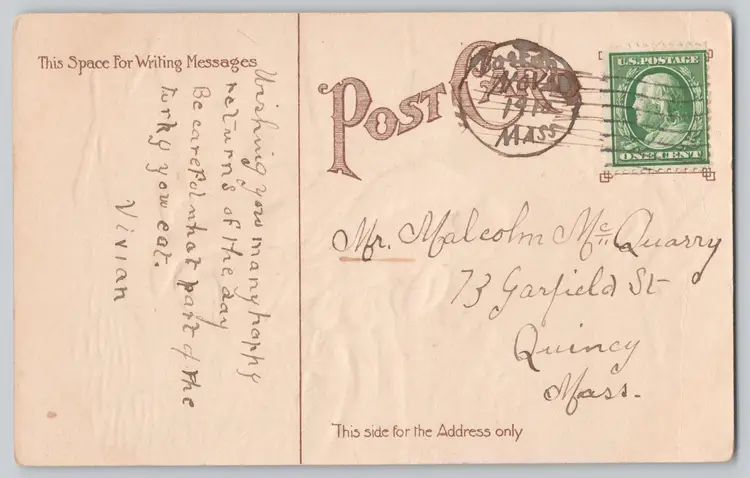 This Space For Writing Messages
Wishing you many happy
returns of the day
Be carefol what part of the
turky you eat.
Vivian
POST CARD
MASS
U.S. POSTAGE
ONE CENT
Mr. Malcolm McQuarry
73 Garfield St
Quincy
Mass.
This side for the Address only